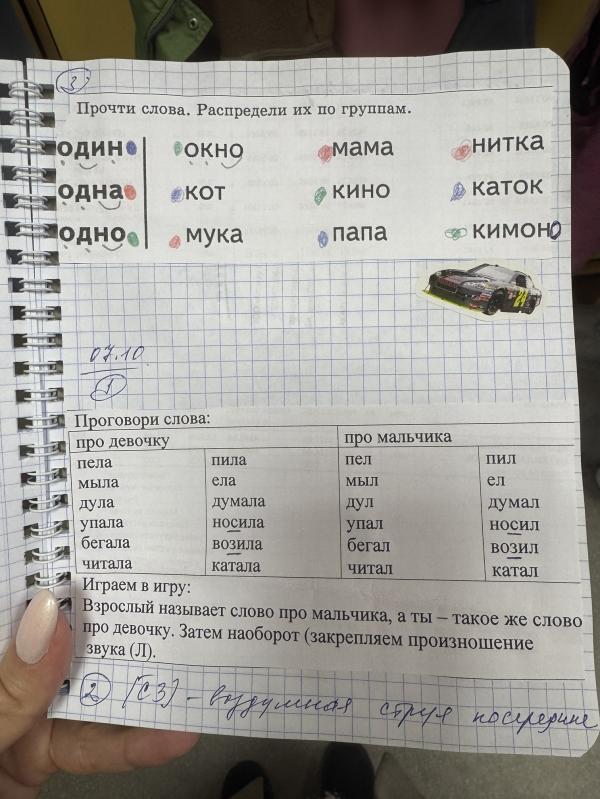 3
Прочти слова. Распредели их по группам.
один окно мама нитка
одна кот кино каток
одно мука папа кимоно
24
07.10
1
Проговори слова:
про девочку про мальчика
пела пила пел пил
мыла ела мыл ел
дула думала дул думал
упала носила упал носил
бегала возила бегал возил
читала катала читал катал
Играем в игру:
Взрослый называет слово про мальчика, а ты – такое же слово
про девочку. Затем наоборот (закрепляем произношение
звука (Л).
2 [СЗ] - воздушная струя посередине